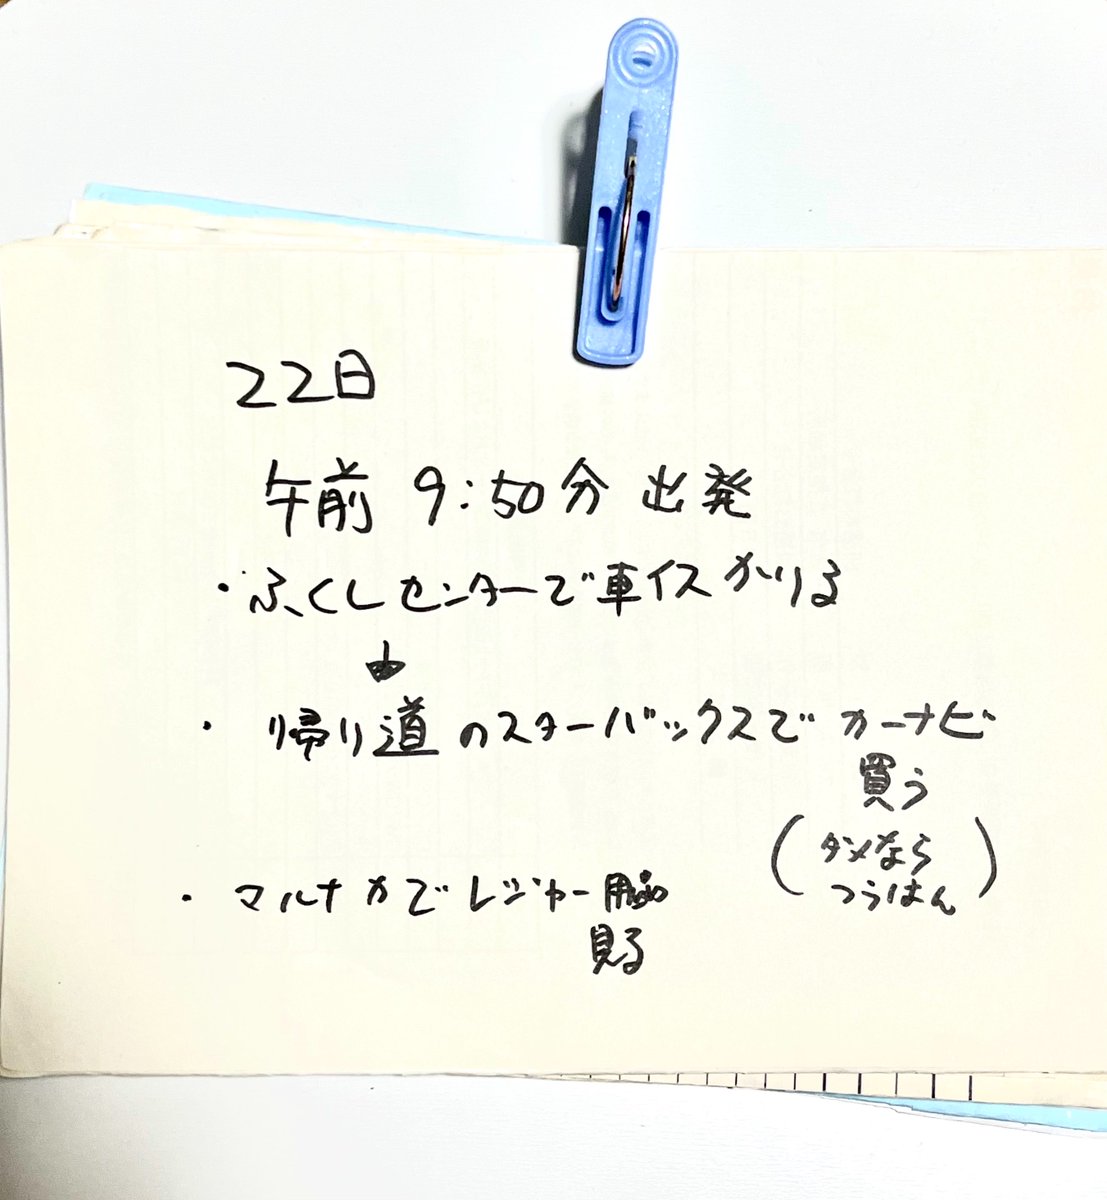 22日
午前 9:50分 出発
・ふくしセンターで車イスかりる
↓
・帰り道のスターバックスで カーナビ
買う
(ダメなら
つうはん)
・マルナカでレジャー用品
見る